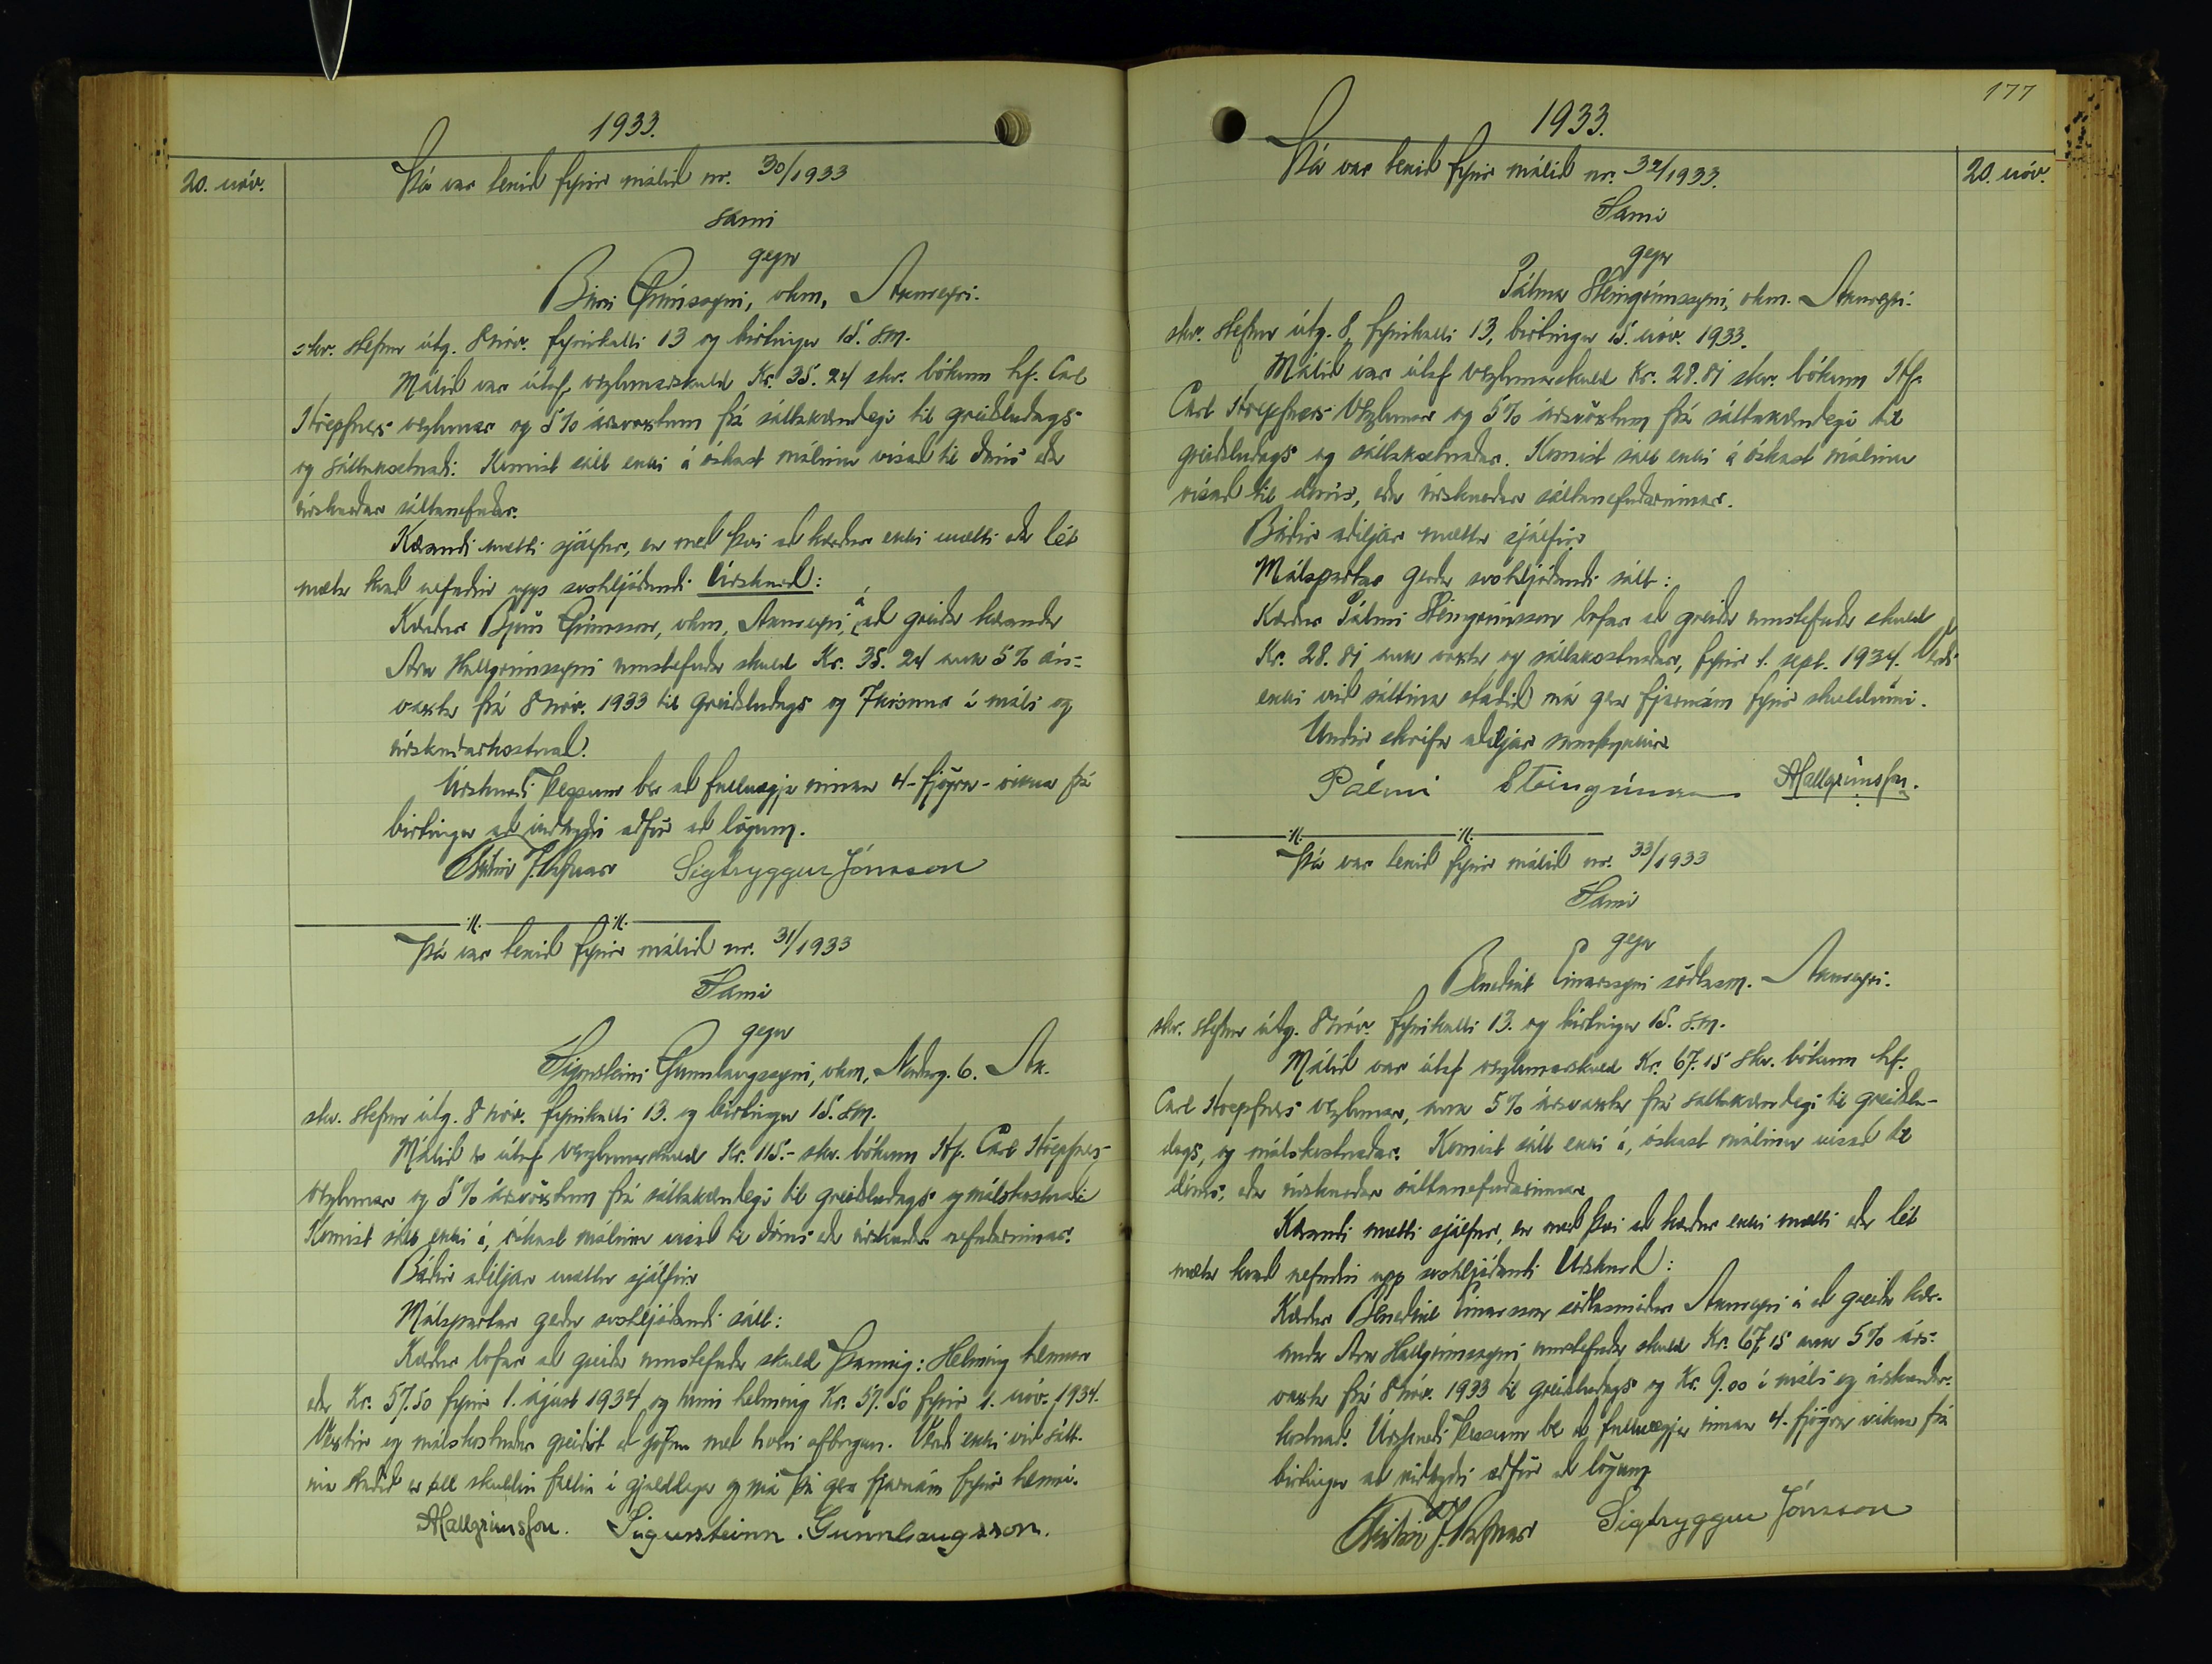 1933.
20. nóv.
Þá var tekið fyrir málið nr. 30/1933
sami
gegn
Birni Grímssyni, vkm, Akureyri.
skv. stefnu útg. 8 nóv. fyrirkalli 13 og birtingu 15. s.m.
Málið var útaf verzlunarskuld Kr. 35.24 skv. bókum hf. Carl
Höepfners verzlunar og 5% ársvöxtum frá sáttakærudegi til greiðsludags
og sáttakostnaði. Komist sátt ekki á óskast málinu vísað til dóms eða
úrskurðar sáttanefndar.
Kærandi mætti sjálfur, en með því að kærður ekki mætti eða lét
mæta kvað nefndin upp svohljóðandi Úrskurð:
Kærður Björn Grímsson, vkm, Akureyri, á að greiða kæranda
Ara Hallgrímssyni umstefnda skuld Kr. 35.24 auk 5% árs-
vaxta frá 8 nóv. 1933 til greiðsludags og 7 krónur í máls og
úrskurðarkostnað.
Úrskurði þessum ber að fullnægja innan 4-fjögra-vikna frá
birtingu að viðlagðri aðför að lögum.
Sigtryggur Jónsson
Þá var tekið fyrir málið nr. 31/1933
Sami
gegn
Sigursteini Gunnlaugssyni, vkm, Norðurg. 6. Ak.
skv. stefnu útg. 8 nóv. fyrirkalli 13. og birtingu 15. s.m.
Málið er útaf verzlunarskuld Kr. 115.- skv. bókum Hf. Carl Höepfners-
verzlunar og 5% ársvöxtum frá sáttakærudegi til greiðsludags og málskostnaði
Komist sátt ekki á, óskast málinu vísað til dóms eða úrskurðar nefndarinnar.
Báðir aðiljar mættu sjálfir
Málspartar gerðu svohljóðandi sátt:
Kærður lofar að greiða umstefnda skuld þannig: Helming hennar
eða Kr. 57.50 fyrir 1. ágúst 1934 og hinn helming Kr. 57.50 fyrir 1. nóv. 1934.
Vextir og málskostnaður greiðist að jöfnu með hvorri afborgun. Verði ekki við sátt-
ina staðið er öll skuldin fallin í gjalddaga og má þá gera fjárnám fyrir henni.
AHallgrímsson. Sigursteinn Gunnlaugsson.
177
1933.
20. nóv.
Þá var tekið fyrir málið nr. 32/1933.
Sami
gegn
Pálma Steingrímssyni, vkm. Akureyri.
skv. stefnu útg. 8, fyrirkalli 13, birtingu 15. nóv. 1933.
Málið var útaf verzlunarskuld Kr. 28.81 skv. bókum Hf.
Carl Höepfners Verzlunar og 5% ársvöxtum frá sáttakærudegi til
greiðsludags og sáttakostnaðar. Komist sátt ekki á óskast málinu
vísað til dóms, eða úrskurðar sáttanefndarinnar.
Báðir aðiljar mættu sjálfir.
Málspartar gerðu svohljóðandi sátt:
Kærður Pálmi Steingrímsson lofar að greiða umstefnda skuld
Kr. 28.81 auk vaxta og sáttakostnaðar, fyrir 1. sept. 1934. Verði
ekki við sáttina staðið má gera fjárnám fyrir skuldinni.
Undir skrifa aðiljar samþykkir
Pálmi Steingrímsson AHallgrímsson.
Þá var tekið fyrir málið nr. 33/1933
Sami
gegn
Benedikt Einarssyni söðlasm. Akureyri.
skv. stefnu útg. 8 nóv. fyrirkalli 13. og birtingu 15. s.m.
Málið var útaf verzlunarskuld Kr. 67.15 skv. bókum hf.
Carl Höepfners verzlunar, auk 5% ársvaxta frá sáttakærudegi til greiðslu-
dags, og málskostnaðar. Komist sátt ekki á, óskast málinu vísað til
dóms, eða úrskurðar sáttanefndarinnar
Kærandi mætti sjálfur, en með því að kærður ekki mætti eða lét
mæta kvað nefndin upp svohljóðandi Úrskurð:
Kærður Benedikt Einarsson söðlasmiður Akureyri á að greiða kær-
anda Ara Hallgrímssyni umstefnda skuld Kr. 67.15 auk 5% árs-
vaxta frá 8 nóv. 1933 til greiðsludags og Kr. 9.00 í máls og úrskurðar-
kostnað. Úrskurði þessum ber að fullnægja innan 4. fjögra vikna frá
birtingu að viðlagðri aðför að lögum
Sigtryggur Jónsson